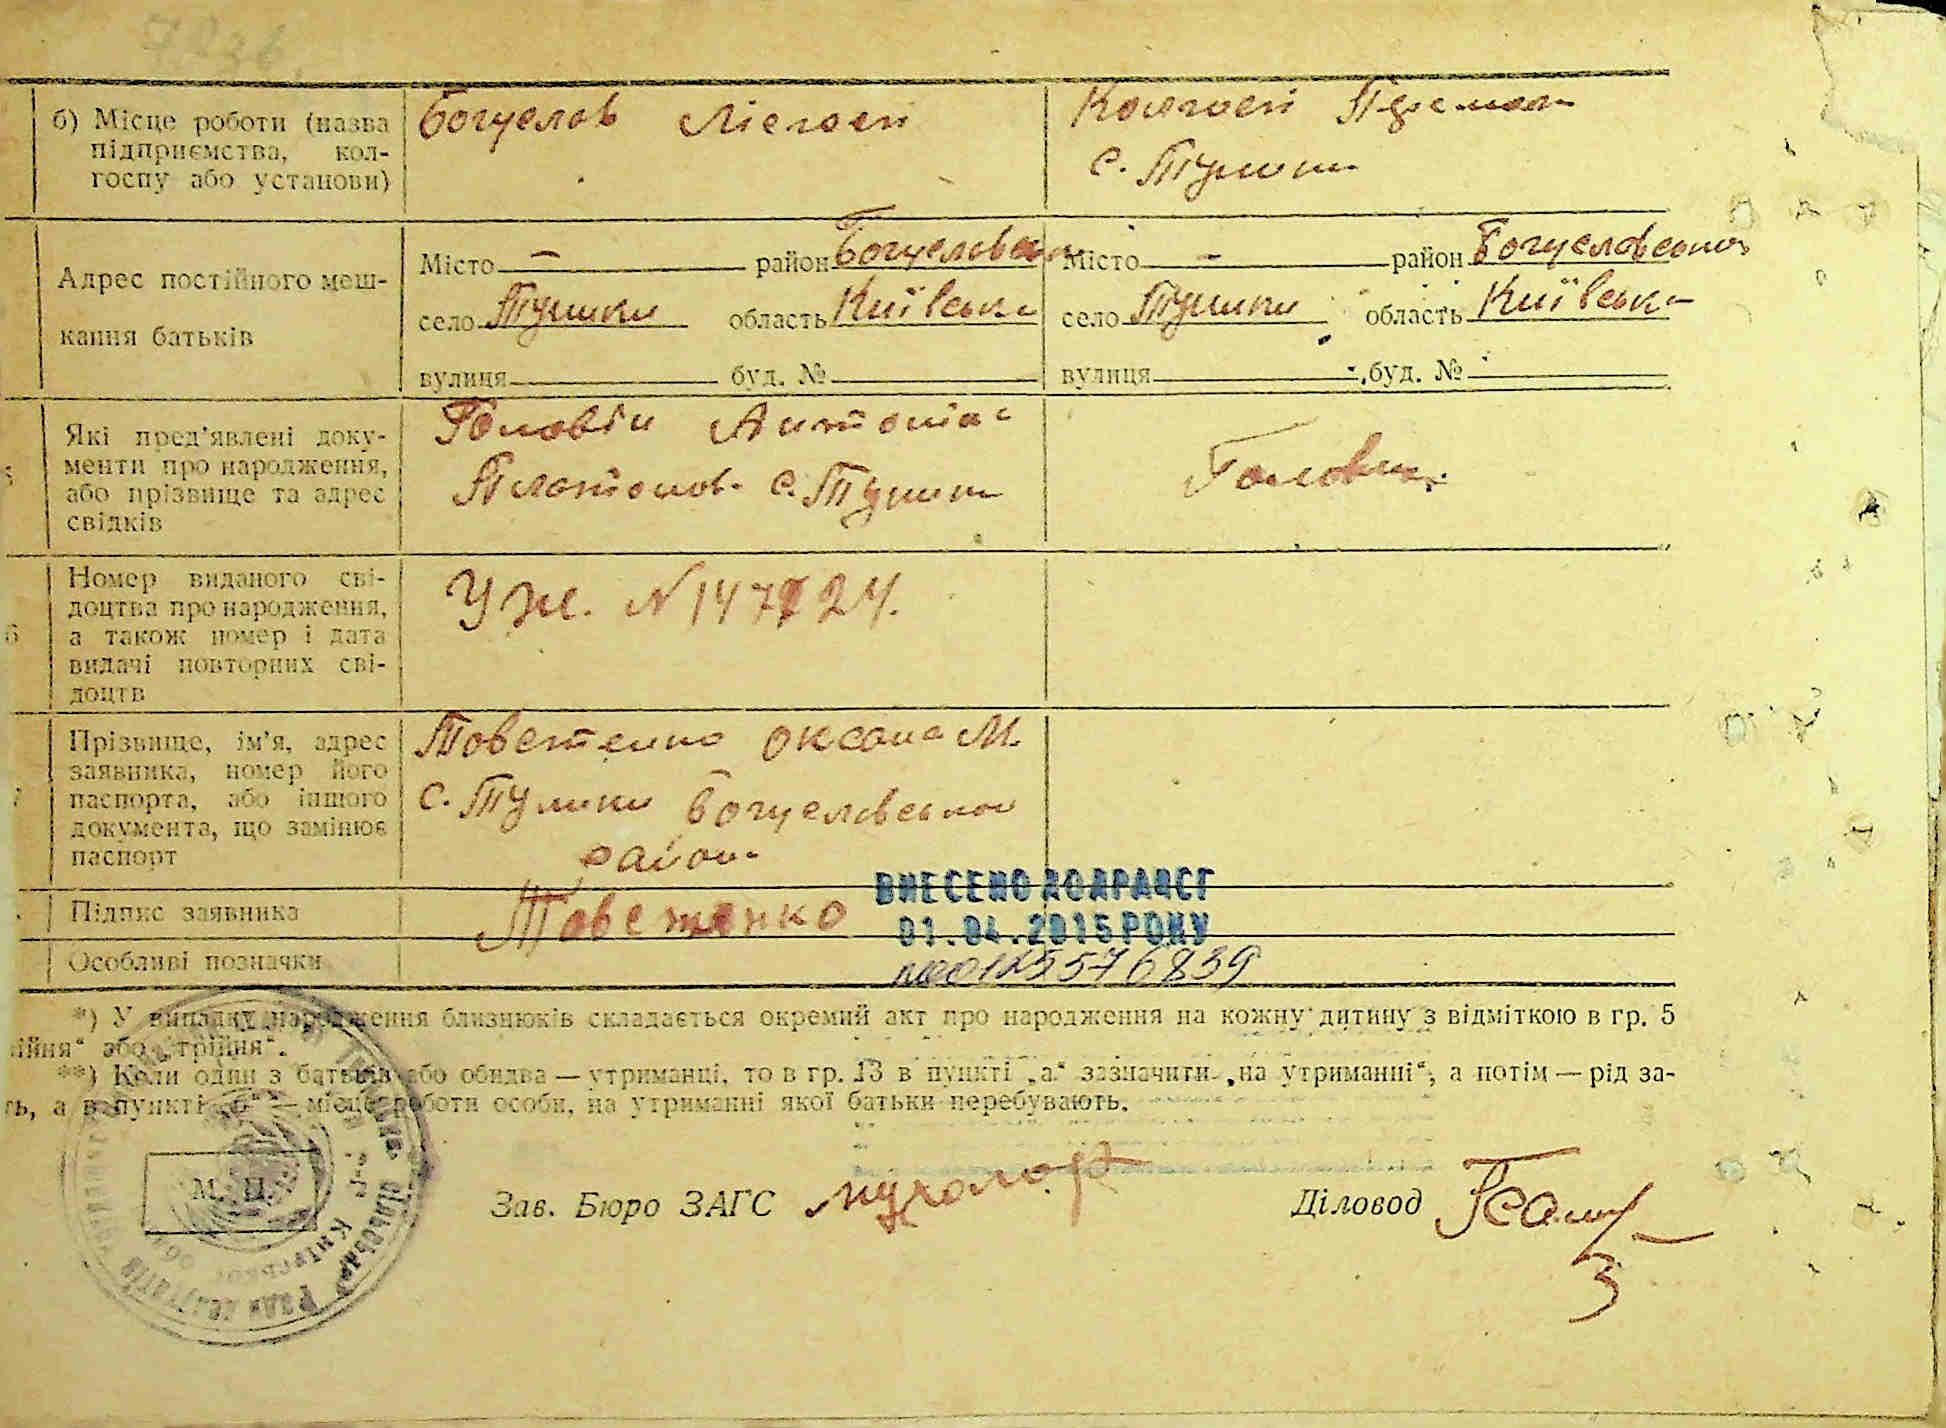 б) Місце роботи (назва
підприємства, кол-
госпу або установи)
Богуслав Лісгосп
Колгосп
с. Тушки
Адрес постійного меш-
кання батьків
Місто — район Богуславськ
село Тушки область Київська
вулиця буд. №
Місто - район Богуславський
село Тушки область Київська
вулиця буд. №
Які пред'явлені доку-
менти про народження,
або прізвище та адрес
свідків
Головін Антоніна
Платонов. с. Тушки
Номер виданого сві-
доцтва про народження,
а також номер і дата
видачі повторних сві-
доцтв
УЖ. N 147124.
Прізвище, ім'я, адрес
заявника, номер його
паспорта, або іншого
документа, що замінює
паспорт
Товстенко Оксана М.
с. Тушки Богуславського
район
Підпис заявника
Товстенко
ВНЕСЕНО ДО ДРАЦСГ
01.04.2015 РОКУ
Особливі позначки
№00125576839
*) У випадку народження близнюків складається окремий акт про народження на кожну дитину з відміткою в гр. 5
ійня" або „трійня".
**) Коли один з батьків або обидва — утриманці, то в гр. 13 в пункті „а" зазначити „на утриманні", а потім — рід за-
ть, а в пункті „б" — місце роботи особи, на утриманні якої батьки перебувають.
М. П.
Зав. Бюро ЗАГС
Діловод